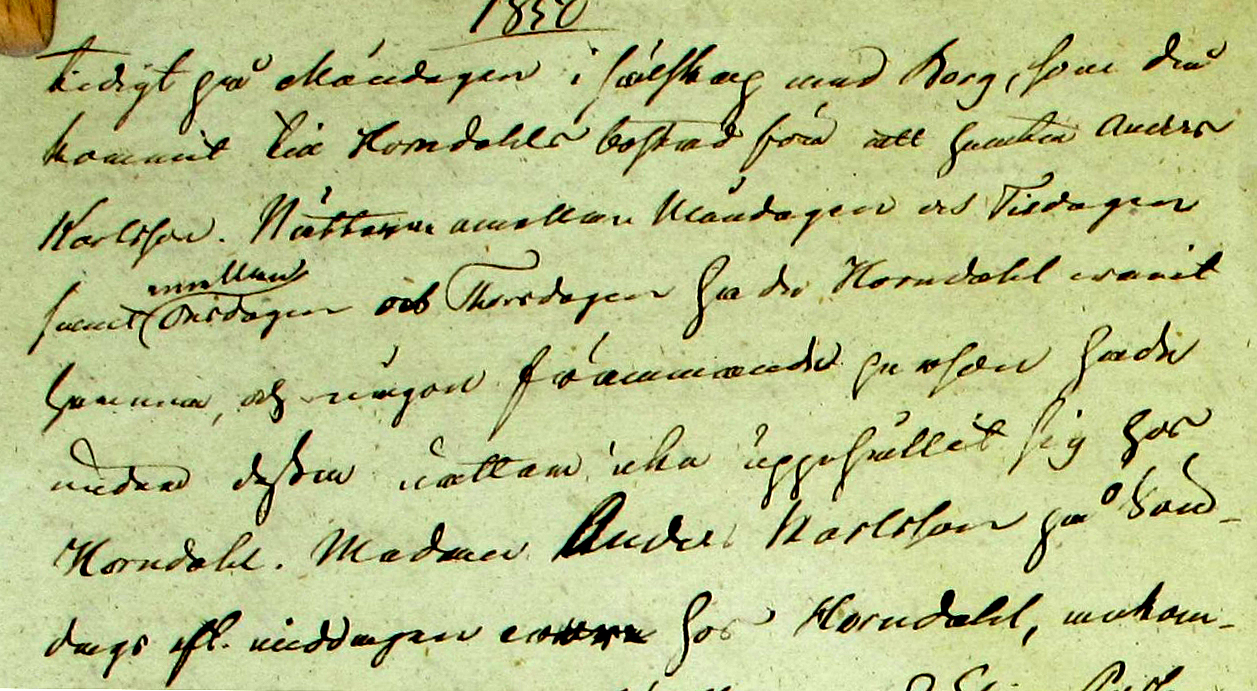 1850
tidigt på Måndagen i sälskap med Borg, som då
kommit till Horndahls bostad för att hemta Anders
Karlsson. Nätterne emellan Måndagen och Tisdagen
samt emellan Onsdagen och Thorsdagen hade Horndahl warit
hemma, och någon främmande person hade
under dessa nätter icke uppehållit sig hos
Horndahl. Medan Anders Karlsson på Sönd-
dags eft. middagen hos Horndahl, ankom-